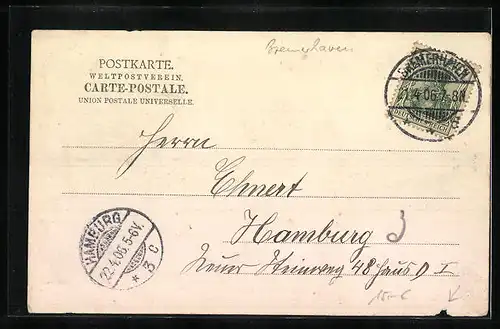 Bremerhaven
POSTKARTE.
WELTPOSTVEREIN.
CARTE-POSTALE.
UNION POSTALE UNIVERSELLE.
BREMERHAVEN
21.4.06.7-8N
Herrn
Ehnert
Hamburg 3
Neuer Steinweg 48 Haus D I
HAMBURG
22.4.06.5-6V.
* 3 C